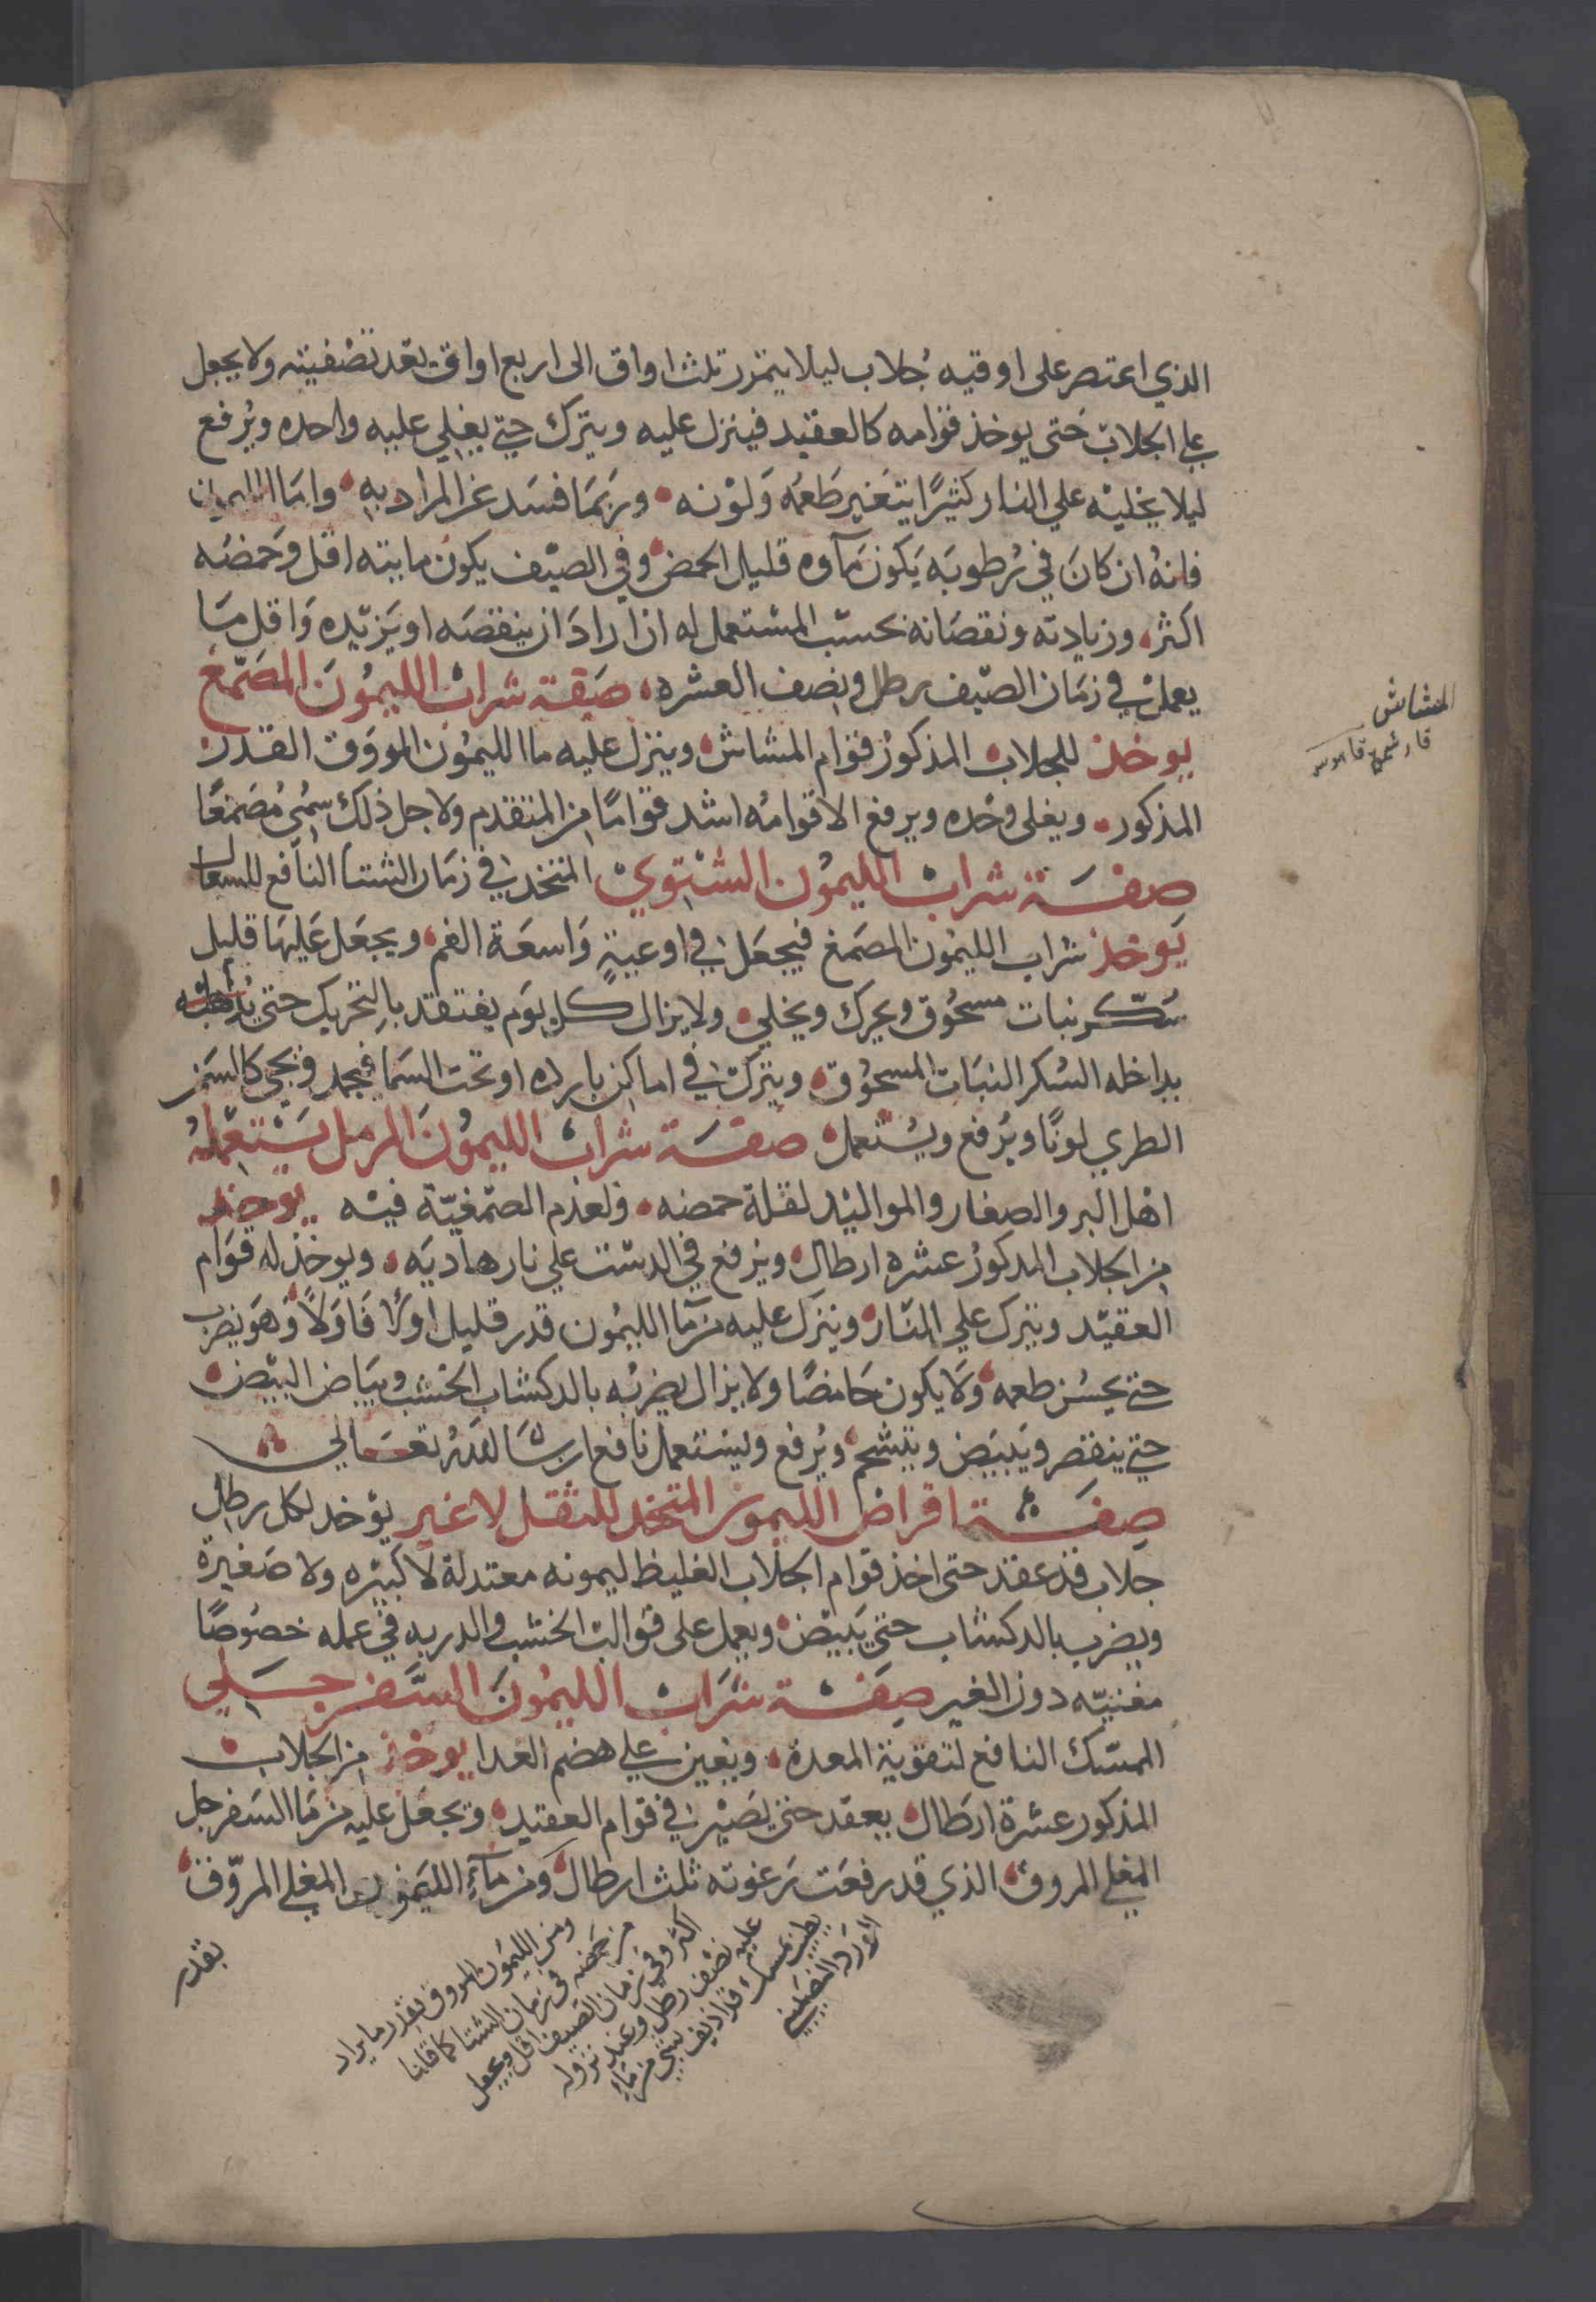 الذي اعتصر على اوقيه جُلاب ليلا يتمرر ثلث اواق الى اربع اواق بعد تصفيته ولا يجعل
علي الجلاب حَتى يوخذ قوامه كالعقيد فينزل عليه ويترك حتي يغلي عليه واحده ويُرفع
ليلا يخليْه علي النار كثيرًا يتغير طَعمُه وَلوْنه وربمَا فسَد عن المراد به وامَا الليمون
فانهُ ان كانَ في رُطوبَه يَكون مَآوه قليل الحمض وفي الصيْف يكون مايته اقل وَحمضه
اكثر وزيادته ونقصَانه بحسَب المسْتعمل له ان ارادَ ان ينقصَه او يَزيّده وَاقل مَا
يعمل في زمَان الصّيف رطل ونصف العشره صَفة شراب الليمُون المصَمّغ
يوخذ للجلاب المذكوُر قوَام المشاش وينزل عليه ما الليمُون المروَق القدر
المذكور ويغلى وحْده ويرفع الا قوامُه اشد قوامًا من المتقدم ولاجل ذلك سُمّي مُصَمغًا
صفَة شراب الليموُن الشتوي المتخد في زمَان الشتا النافع للسعال
يَوخذ شراب الليمُون المصَمغ فيجعَل في اوعيةٍ وَاسعَة الفم ويجعَل عَليهَا قليل
سُكّر نبات مسحُوق ويحرك ويخلي ولا يزال كل يَوم يفتقد بالتحريك حتى
بداخله السُكر النبَات المسحُوق ويترك في اماكن بارده او تحت السَما فيجمد ويجي كالسَمن
الطري لونًا ويُرفع ويسْتعمل صفَة شراب الليموُن المرمل يَسْتعملهُ
اهْل البر والصغار والمواليْد لقلة حمضه ولعدم الصّمغيّة فيْه يوخذ
من الجلاب المدكوُر عشره ارطال ويُرفع في الدسْت علي نار هاديَه ويوخذ له قوَام
العقيْد ويترك علي النّار وينزل عليه من مَا الليمُون قدر قليل اوَلًا فَاوَلًا وَهوَ يضرب
حتي يحسُن طعمه وَلا يكون حَامضًا ولا يزال يضربُه بالدكشاب الخشب وبيَاض البيْض
حتي ينقصر ويَبيَض ويتشحم ويُرفع ويسْتعمل نافع ان شَا الله تعَالي
صِفَة اقراض الليمون المتخد للثقل لا غير يؤخد لكل رطل
جلاب قد عقد حتى اخذ قوام الجلاب الغليظ ليمونه معتدلة لا كبيْره ولا صَغيرة
ويضرب بالدكشاب حتي يَبيَض ويعمل على قوالب الخشب والدربه في عمله خصُوصًا
مغنيّه دون الغير صِفَة شَرَاب الليمُون السَّفرجَلي
الممسّك النافع لتقوية المعدة ويُعين علي هضم الغدا يوخذ من الجلاب
المذكور عشرة ارطال يعقد حتى يصَيْر في قوام العقيد ويجعَل عليه من مَا السَفرجل
المغلي المروق الذي قد رفعَت رَغوته ثلث ارطال ومن مآء الليمون المغلي المروّق
بقدر
ومن الليمُون المروق بقدر ما يراد
من حمضه في زمان الشتا كما قلنا
اكثر وفي زمان الصَيف اقل ويجعل
عليه نصْف رطل وعند نزوله
يطيب بمسك قد اذيف بشي من مَاءِ
الورد النصيبيني
المشاش
قاموس